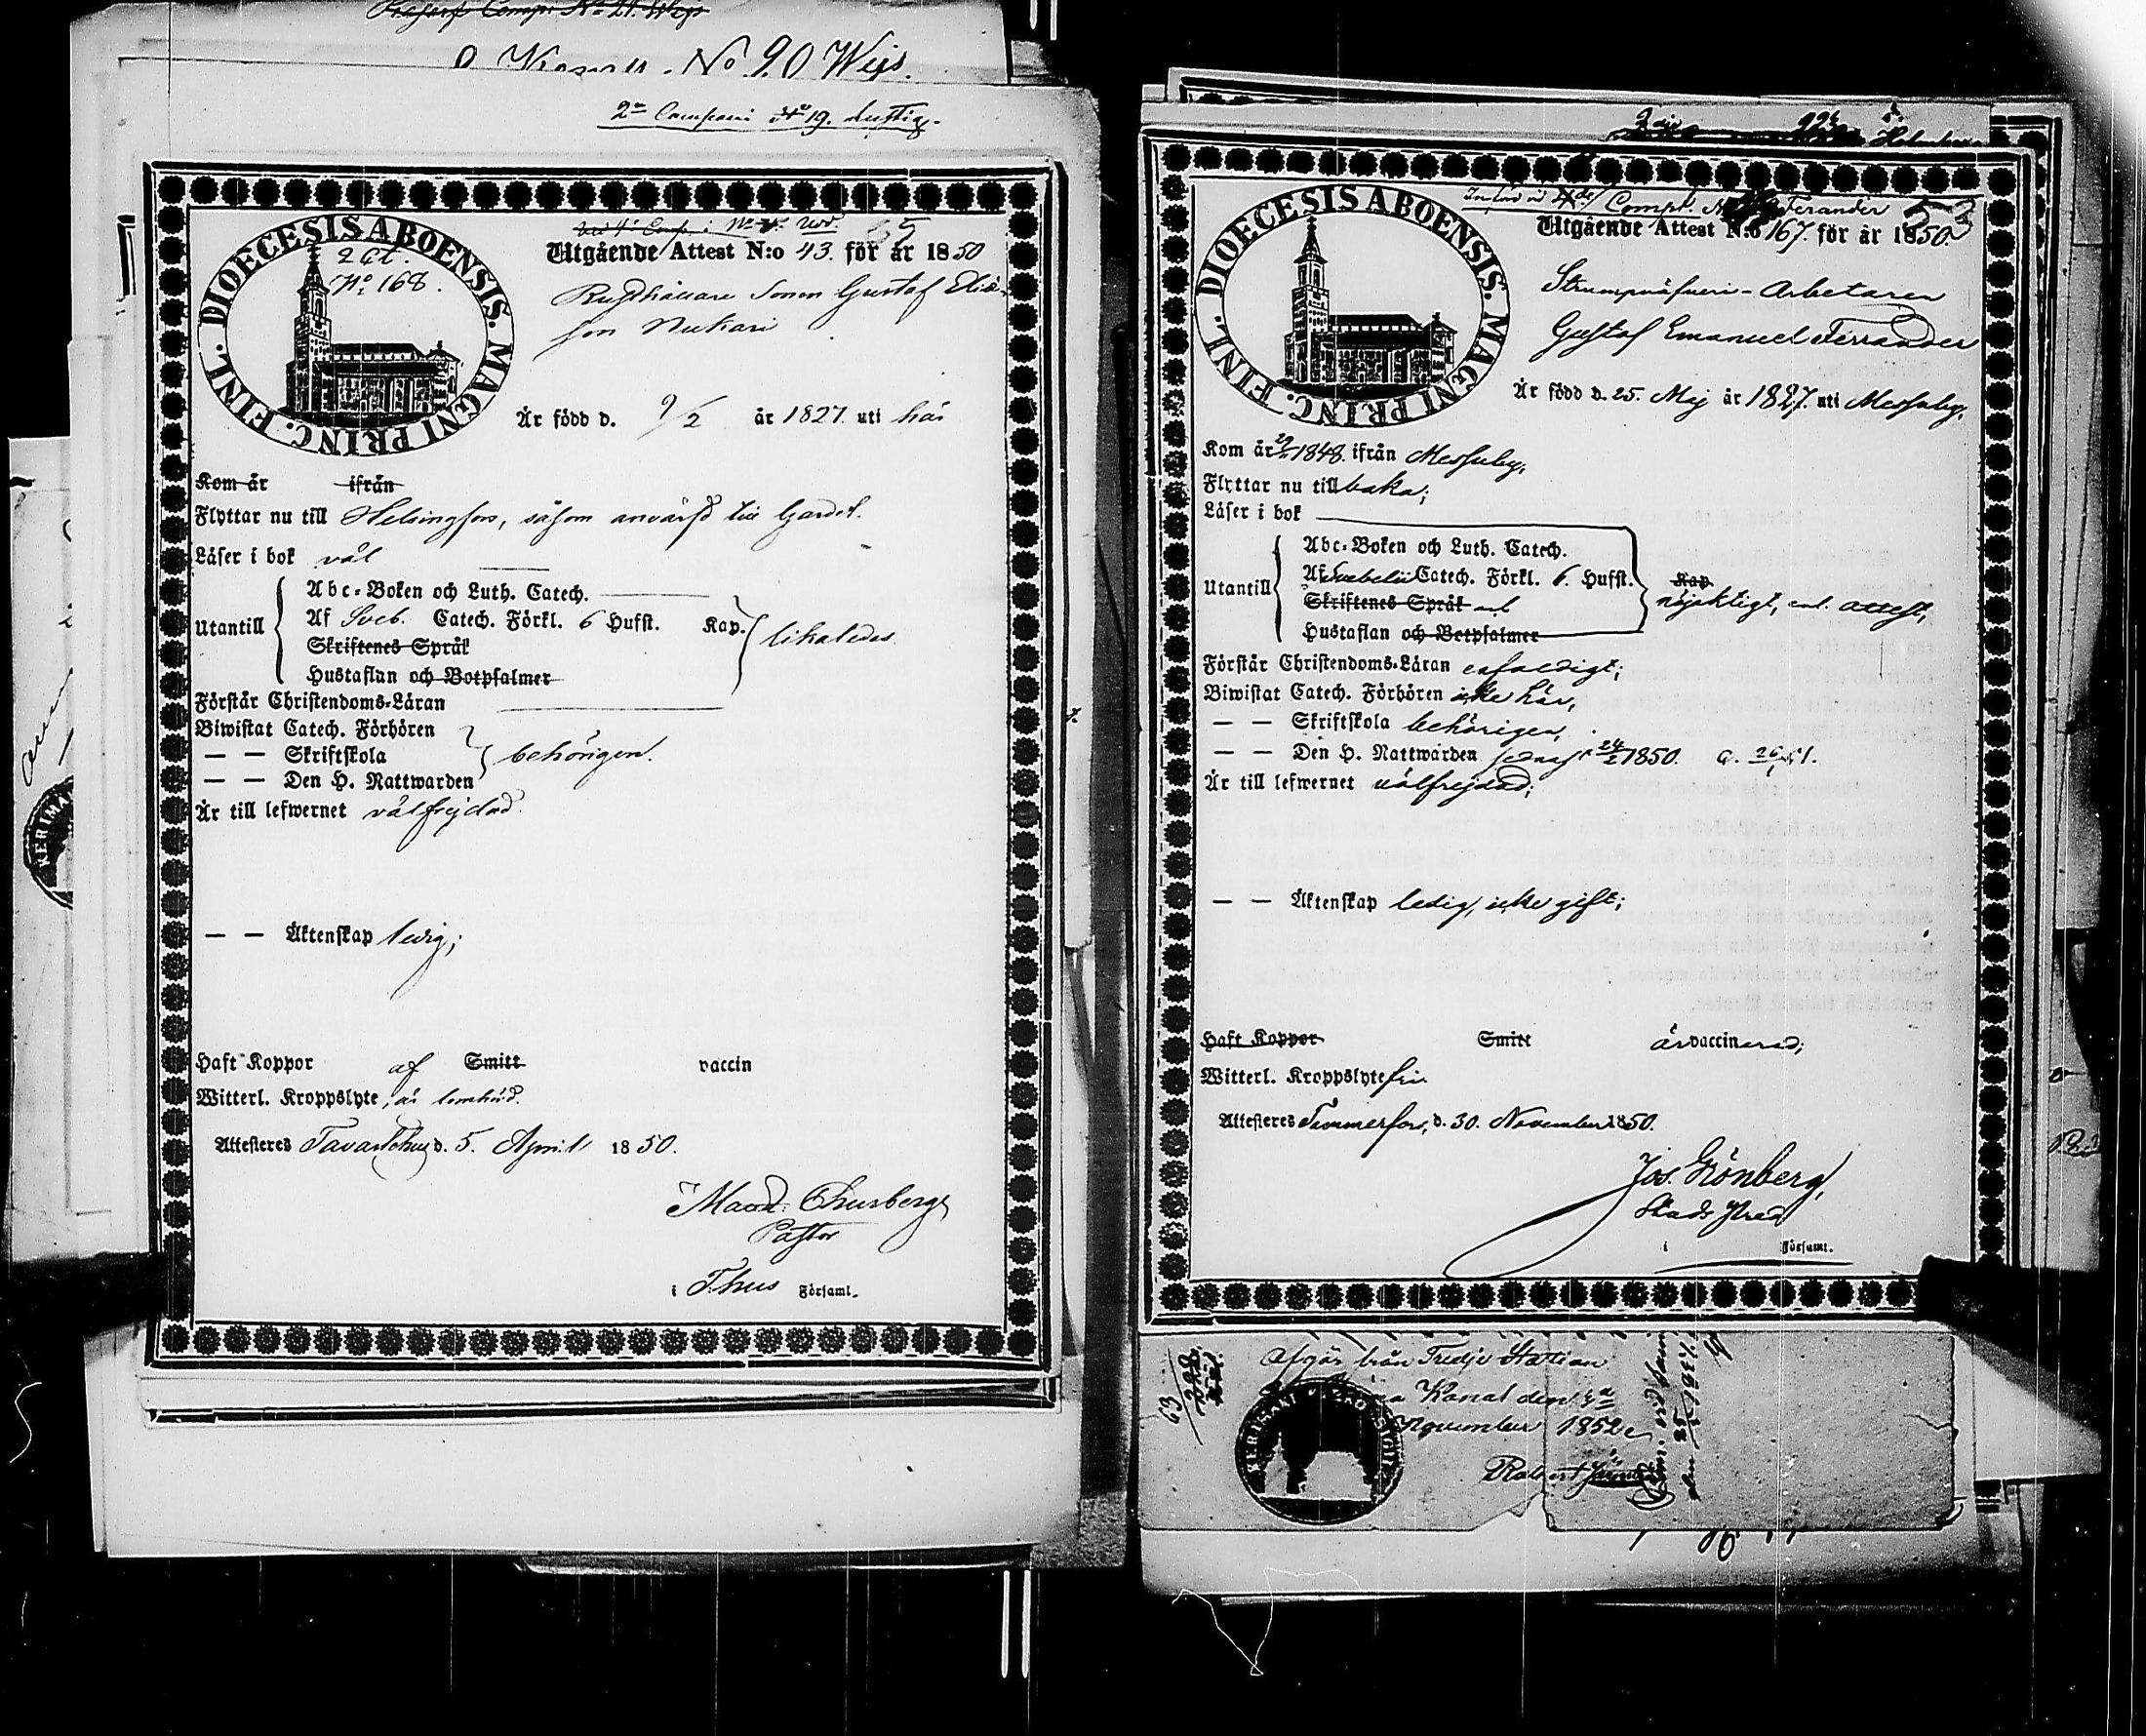 No 20 Weijs.
2a Compani No 19. Lustig.
DIOECESIS ABOENSIS. MAGNI PRINC. FINL.
2 Ct.
No 168.
Utgående Attest N:o 43. för år 1850
Rusthållare Sonen Gustaf Eliä-
son Nukari
Är född d. 9/2 år 1827. uti här
Kom år ifrån
Flyttar nu till Helsingfors, såsom anvärfd till Gardet.
Läser i bok väl
Abc-Boken och Luth. Catech.
Utantill Af Sveb. Catech. Förkl. 6 Hufst. Kap. likaledes
Skriftenes Språk
Hustaflan och Botpsalmer
Förstår Christendoms-Läran
Biwistat Catech. Förhören
— — Skriftskola behörigen.
— — Den H. Nattwarden
Är till lefwernet välfrejdad.
— — Äktenskap ledig;
Haft Koppor af Smitt vaccin
Witterl. Kroppslyte, är lomhörd.
Attesteres Tavastehus d. 5. April 1850.
Thusberg
Pastor
i T:hus Församl.
DIOECESIS ABOENSIS. MAGNI PRINC. FINL.
Compt. Terander
53
Utgående Attest N:o 167. för år 1850.
Strumpväfveri-Arbetaren
Gustaf Emanuel Terrander
Är född d. 25. Maj år 1827. uti Messuby.
Kom år 1848. ifrån Messuby,
Flyttar nu tillbaka;
Läser i bok
Abc-Boken och Luth. Catech.
Utantill Af Svebelii Catech. Förkl. 6. Hufst. Kap.
Skriftenes Språk nöjaktigt, enl. attest,
Hustaflan och Botpsalmer
Förstår Christendoms-Läran enfaldigt;
Biwistat Catech. Förhören icke här,
— — Skriftskola behörigen,
— — Den H. Nattwarden sednast 24/2 1850.
Är till lefwernet välfrejdad;
— — Äktenskap ledig, icke gift;
Haft Koppor Smitt är vaccinerad;
Witterl. Kroppslyte fri
Attesteres Tammerfors, d. 30. November 1850.
Jos. Grönberg,
i Församl.
Afgår från Tredje Station
Kanal den
November 1852